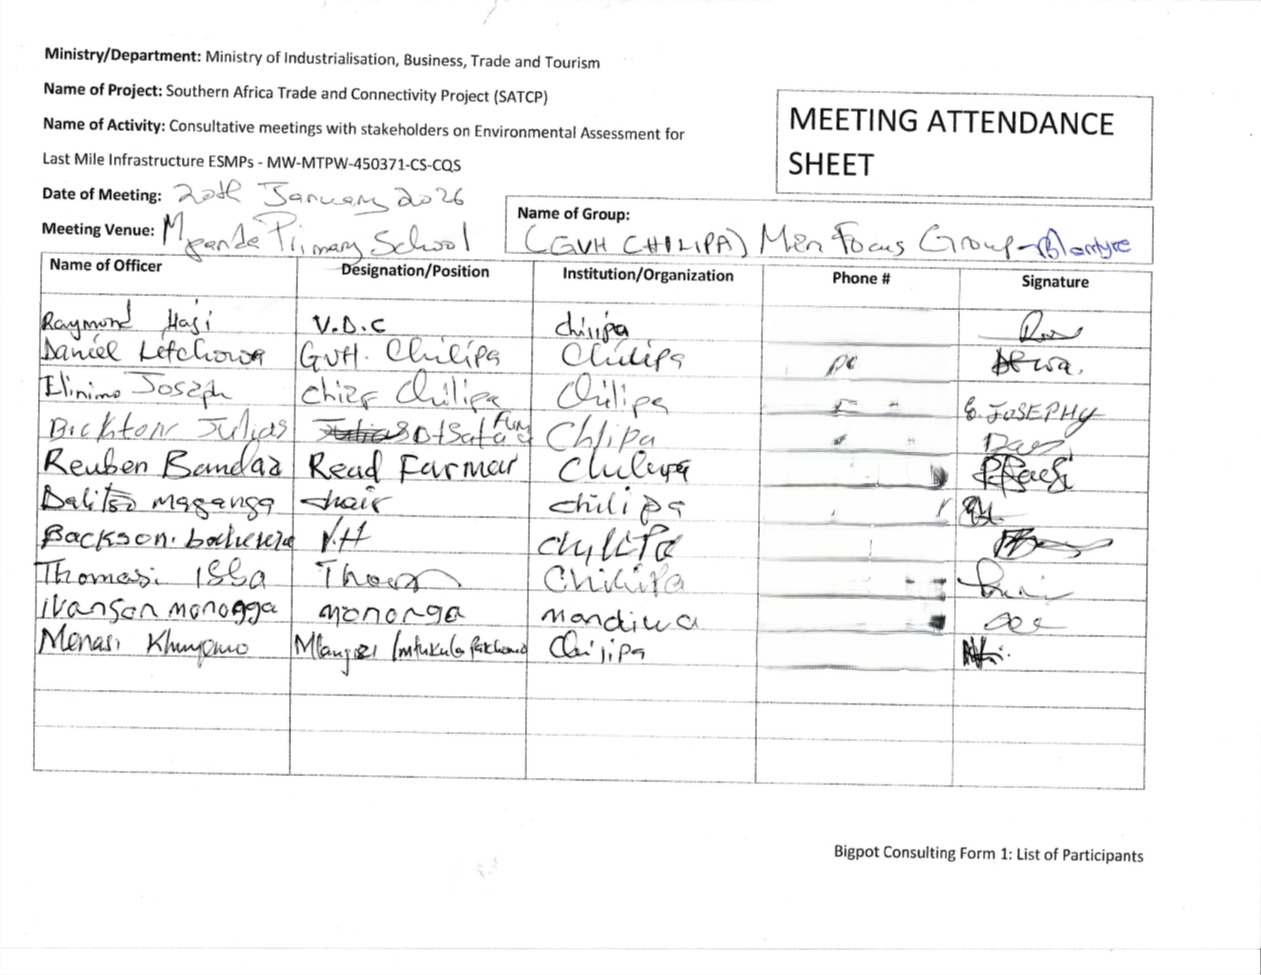 Ministry/Department: Ministry of Industrialisation, Business, Trade and Tourism
Name of Project: Southern Africa Trade and Connectivity Project (SATCP)
Name of Activity: Consultative meetings with stakeholders on Environmental Assessment for
Last Mile Infrastructure ESMPs - MW-MTPW-450371-CS-CQS
MEETING ATTENDANCE
SHEET
Date of Meeting: 20th January 2026
Meeting Venue: Mpande Primary School
Name of Group:
(GVH CHILIPA) Men Focus Group - Blantyre
Name of Officer Designation/Position Institution/Organization Phone # Signature
Raymond Hasi V.D.C chilipa
Daniel Letchowa GVH. Chilipa Chilipa
Elinimo Joseph Chief Chilipa Chilipa E. JOSEPHY
Bickton Julias Chlipa
Reuben Bandaa Read Farmar
Dalitso maganga chair chilipa
Backson V.H
Thomasi ISSa Chilipa
ivanson monogga mononga mandiwa
Menasi Chilipa
Bigpot Consulting Form 1: List of Participants